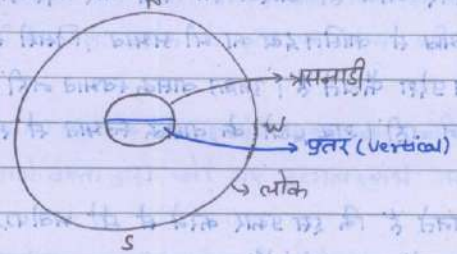 N
त्रसनाडी
W
प्रतर (vertical)
लोक
S